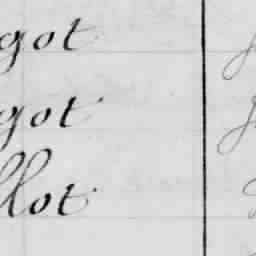 got
got
llot